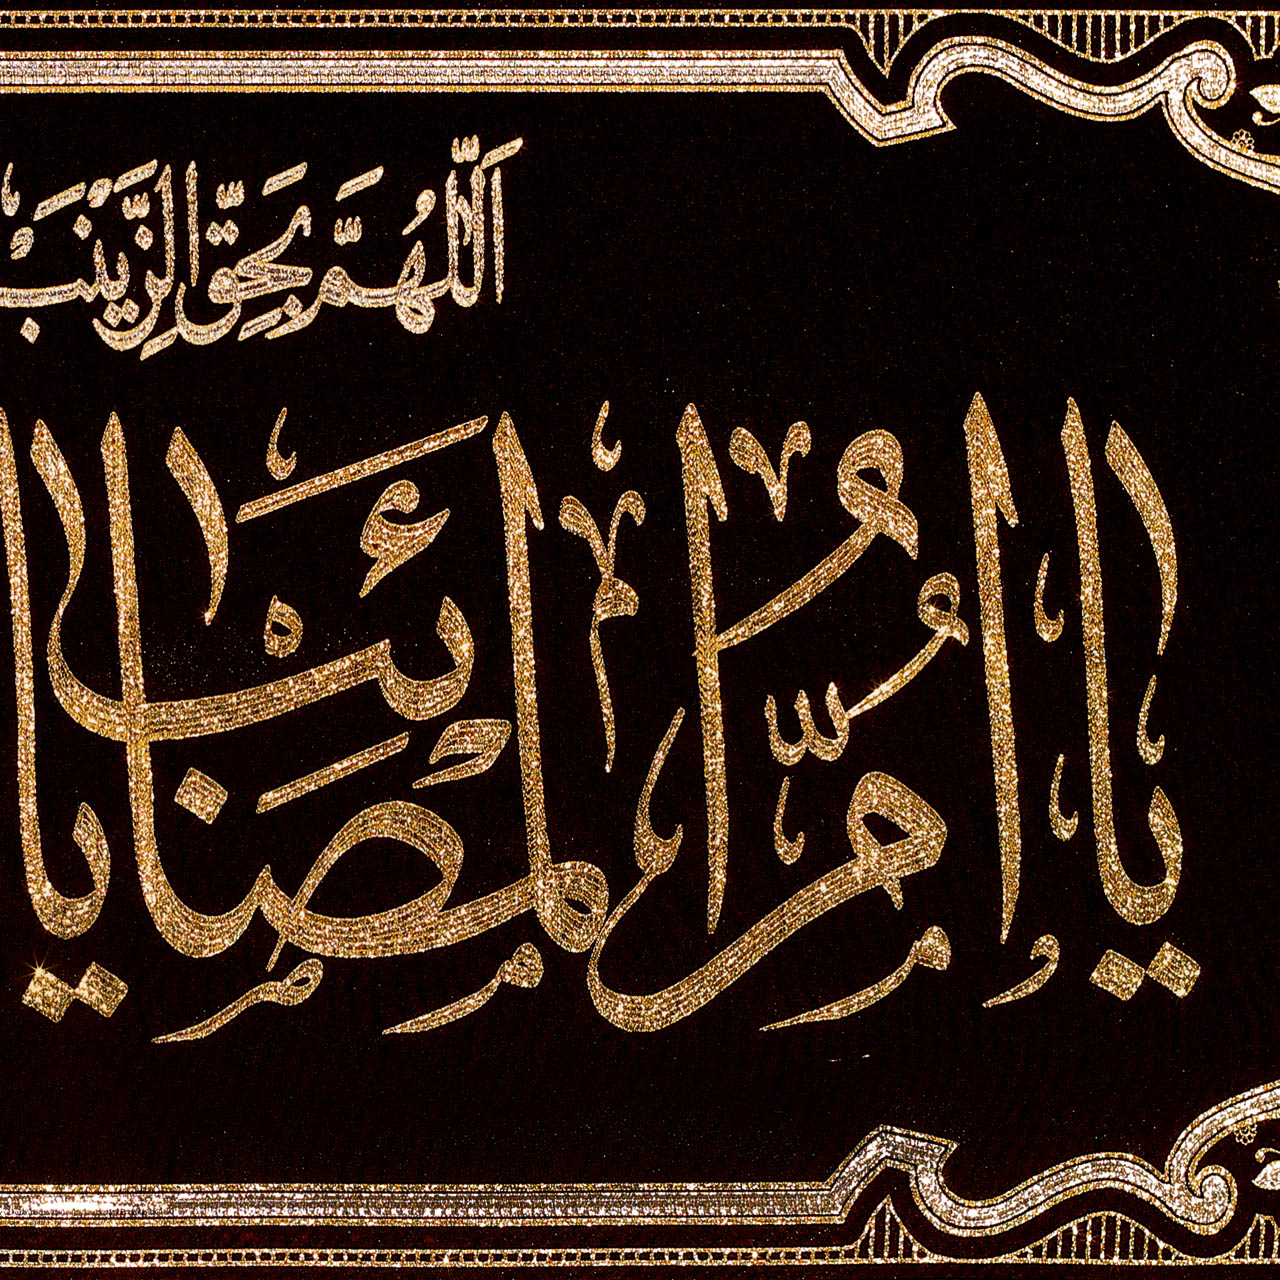 اَللّٰهُمَّ بِحَقِّ الزَّیْنَبْ
یا اُمُّ الْمَصَائِبْ یا